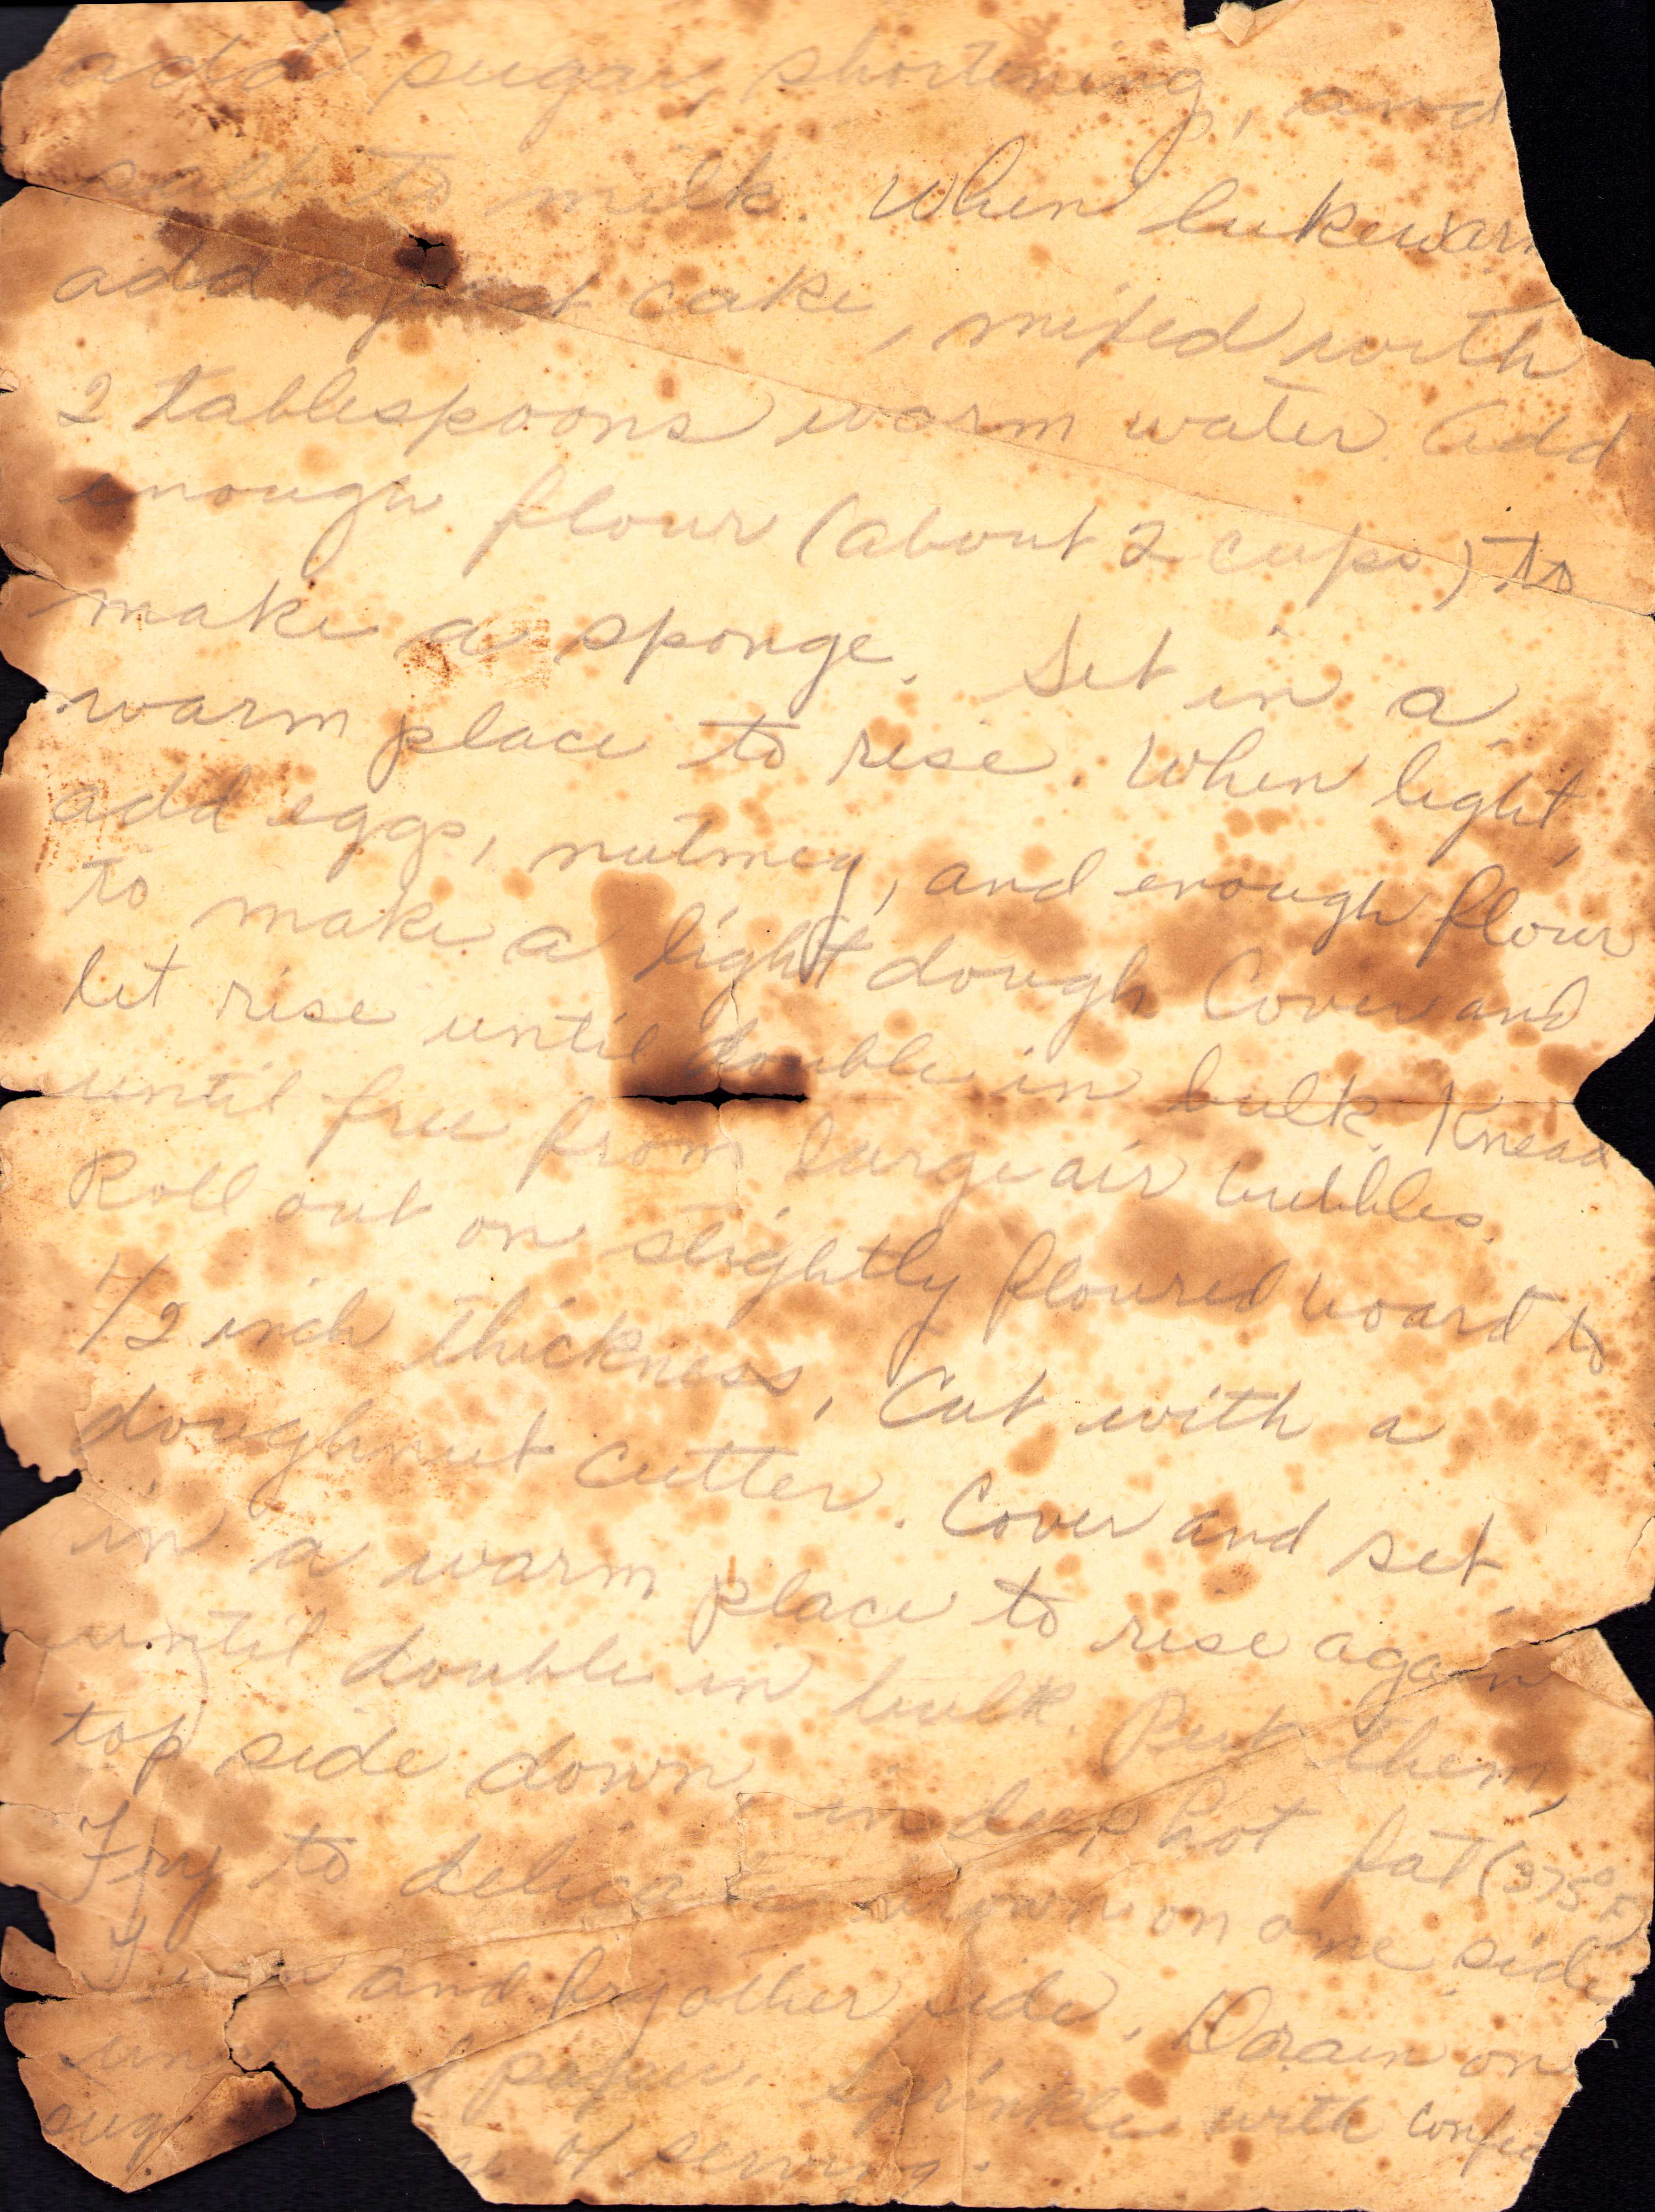 add sugar, shortening, and
salt to milk. When lukewarm
add yeast cake, mixed with
2 tablespoons warm water. Add
enough flour (about 2 cups) to
make a sponge. Set in a
warm place to rise. When light,
add eggs, nutmeg, and enough flour
to make a light dough Cover and
let rise until double in bulk. Knead
until free from large air bubbles.
Roll out on slightly floured board to
1/2 inch thickness. Cut with a
doughnut cutter. Cover and set
in a warm place to rise again
until double in bulk. Put them,
top side down, in deep hot fat (375° F)
Fry to delicate brown on one side
Turn and fry other side. Drain on
paper. Sprinkle with confec
sug of serving.